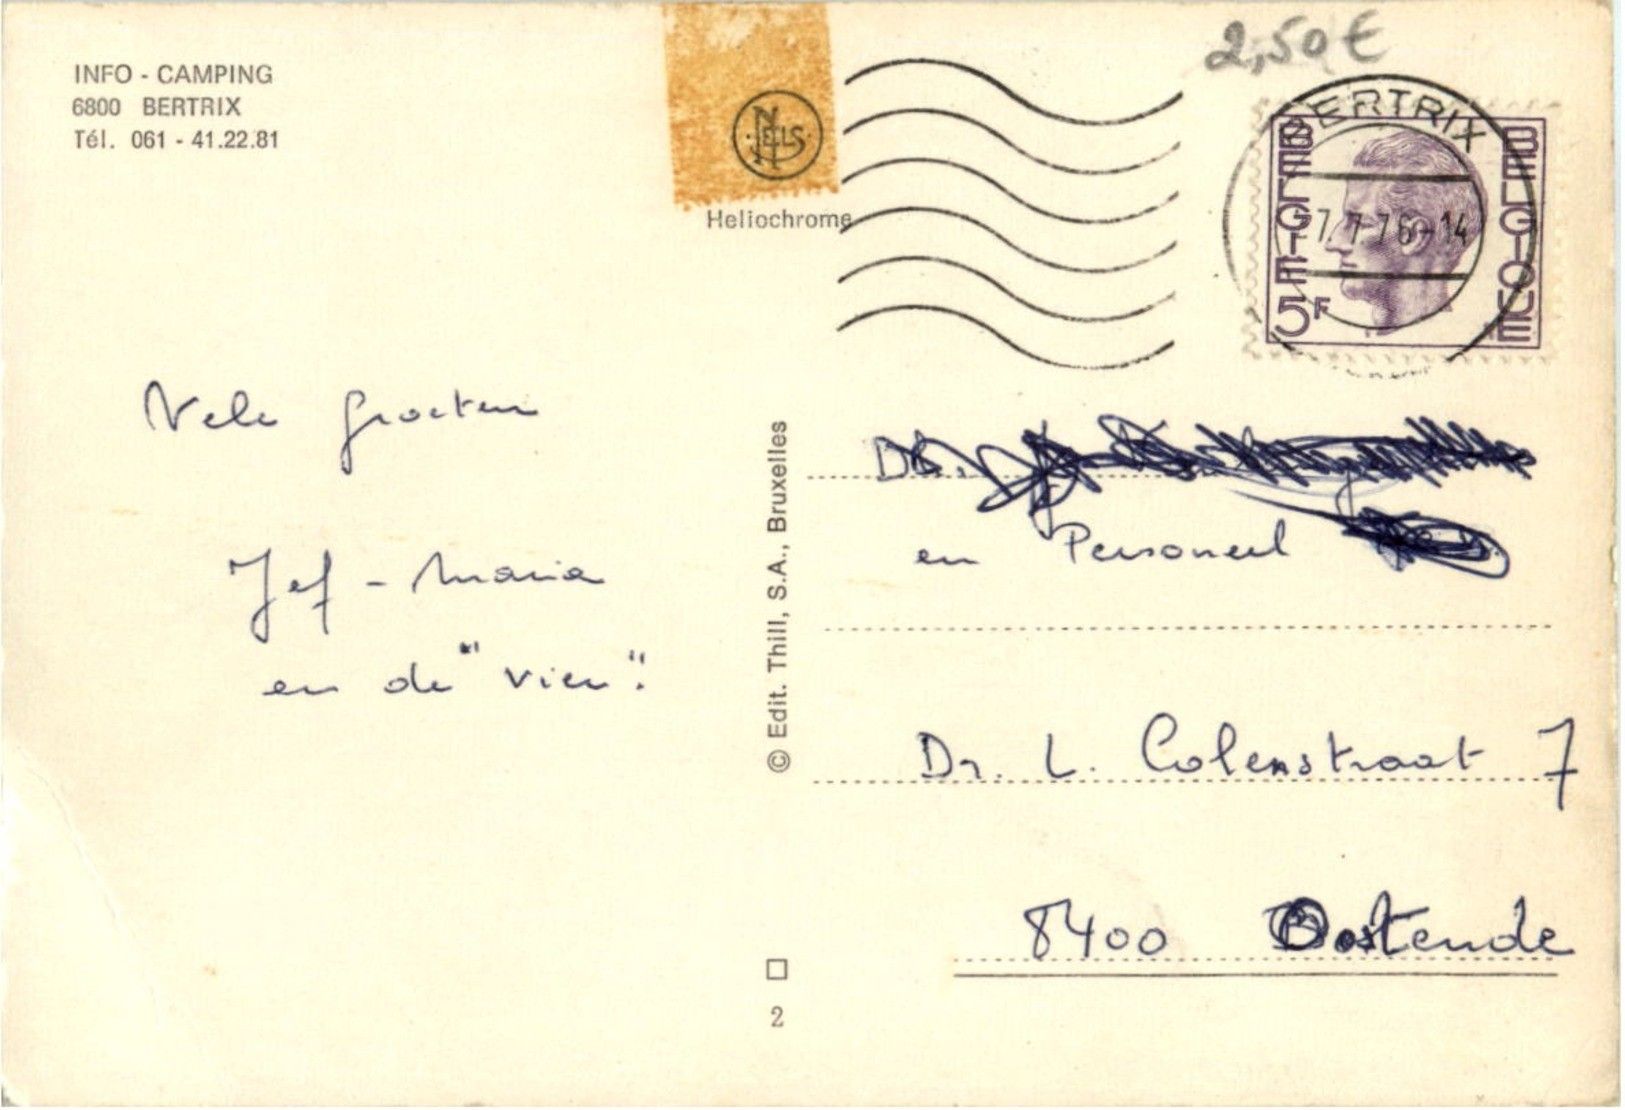 INFO - CAMPING
6800 BERTRIX
Tél. 061 - 41.22.81
NELS
Heliochrome
2,50€
BERTRIX
7.7.76-14
BELGIË
BELGIQUE
5F
Vele groeten
Jef - Maria
en de "vier".
© Edit. Thill, S.A., Bruxelles
en Personeel
Dr. L. Colenstraat 7
8400 Oostende
2